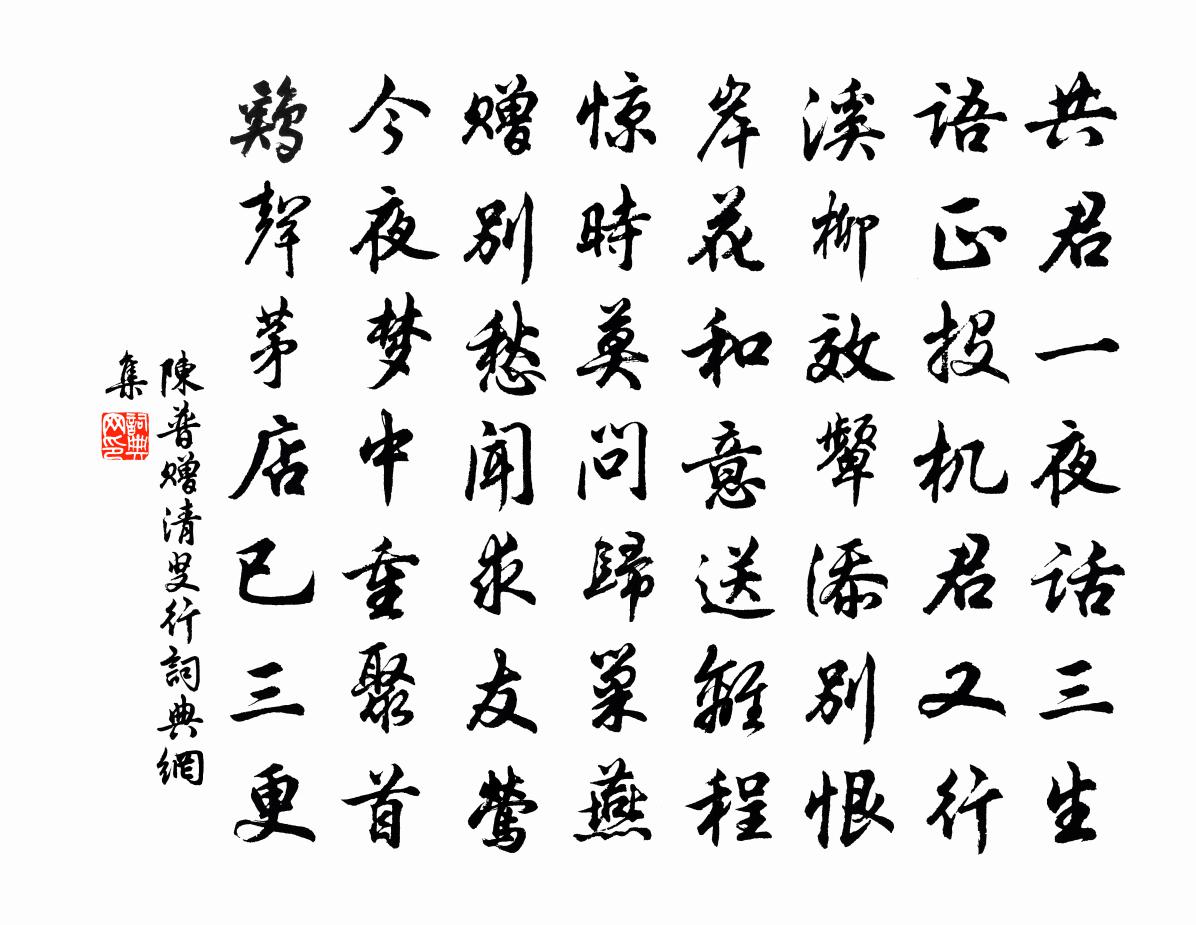 共君一夜话三生
语正投机君又行
溪柳效颦添别恨
岸花和意送離程
惊時莫问歸巢燕
赠别愁闻求友莺
今夜梦中重聚首
鷄聲茅店已三更
陳普赠清叟行詞典網
集
詞典
网印